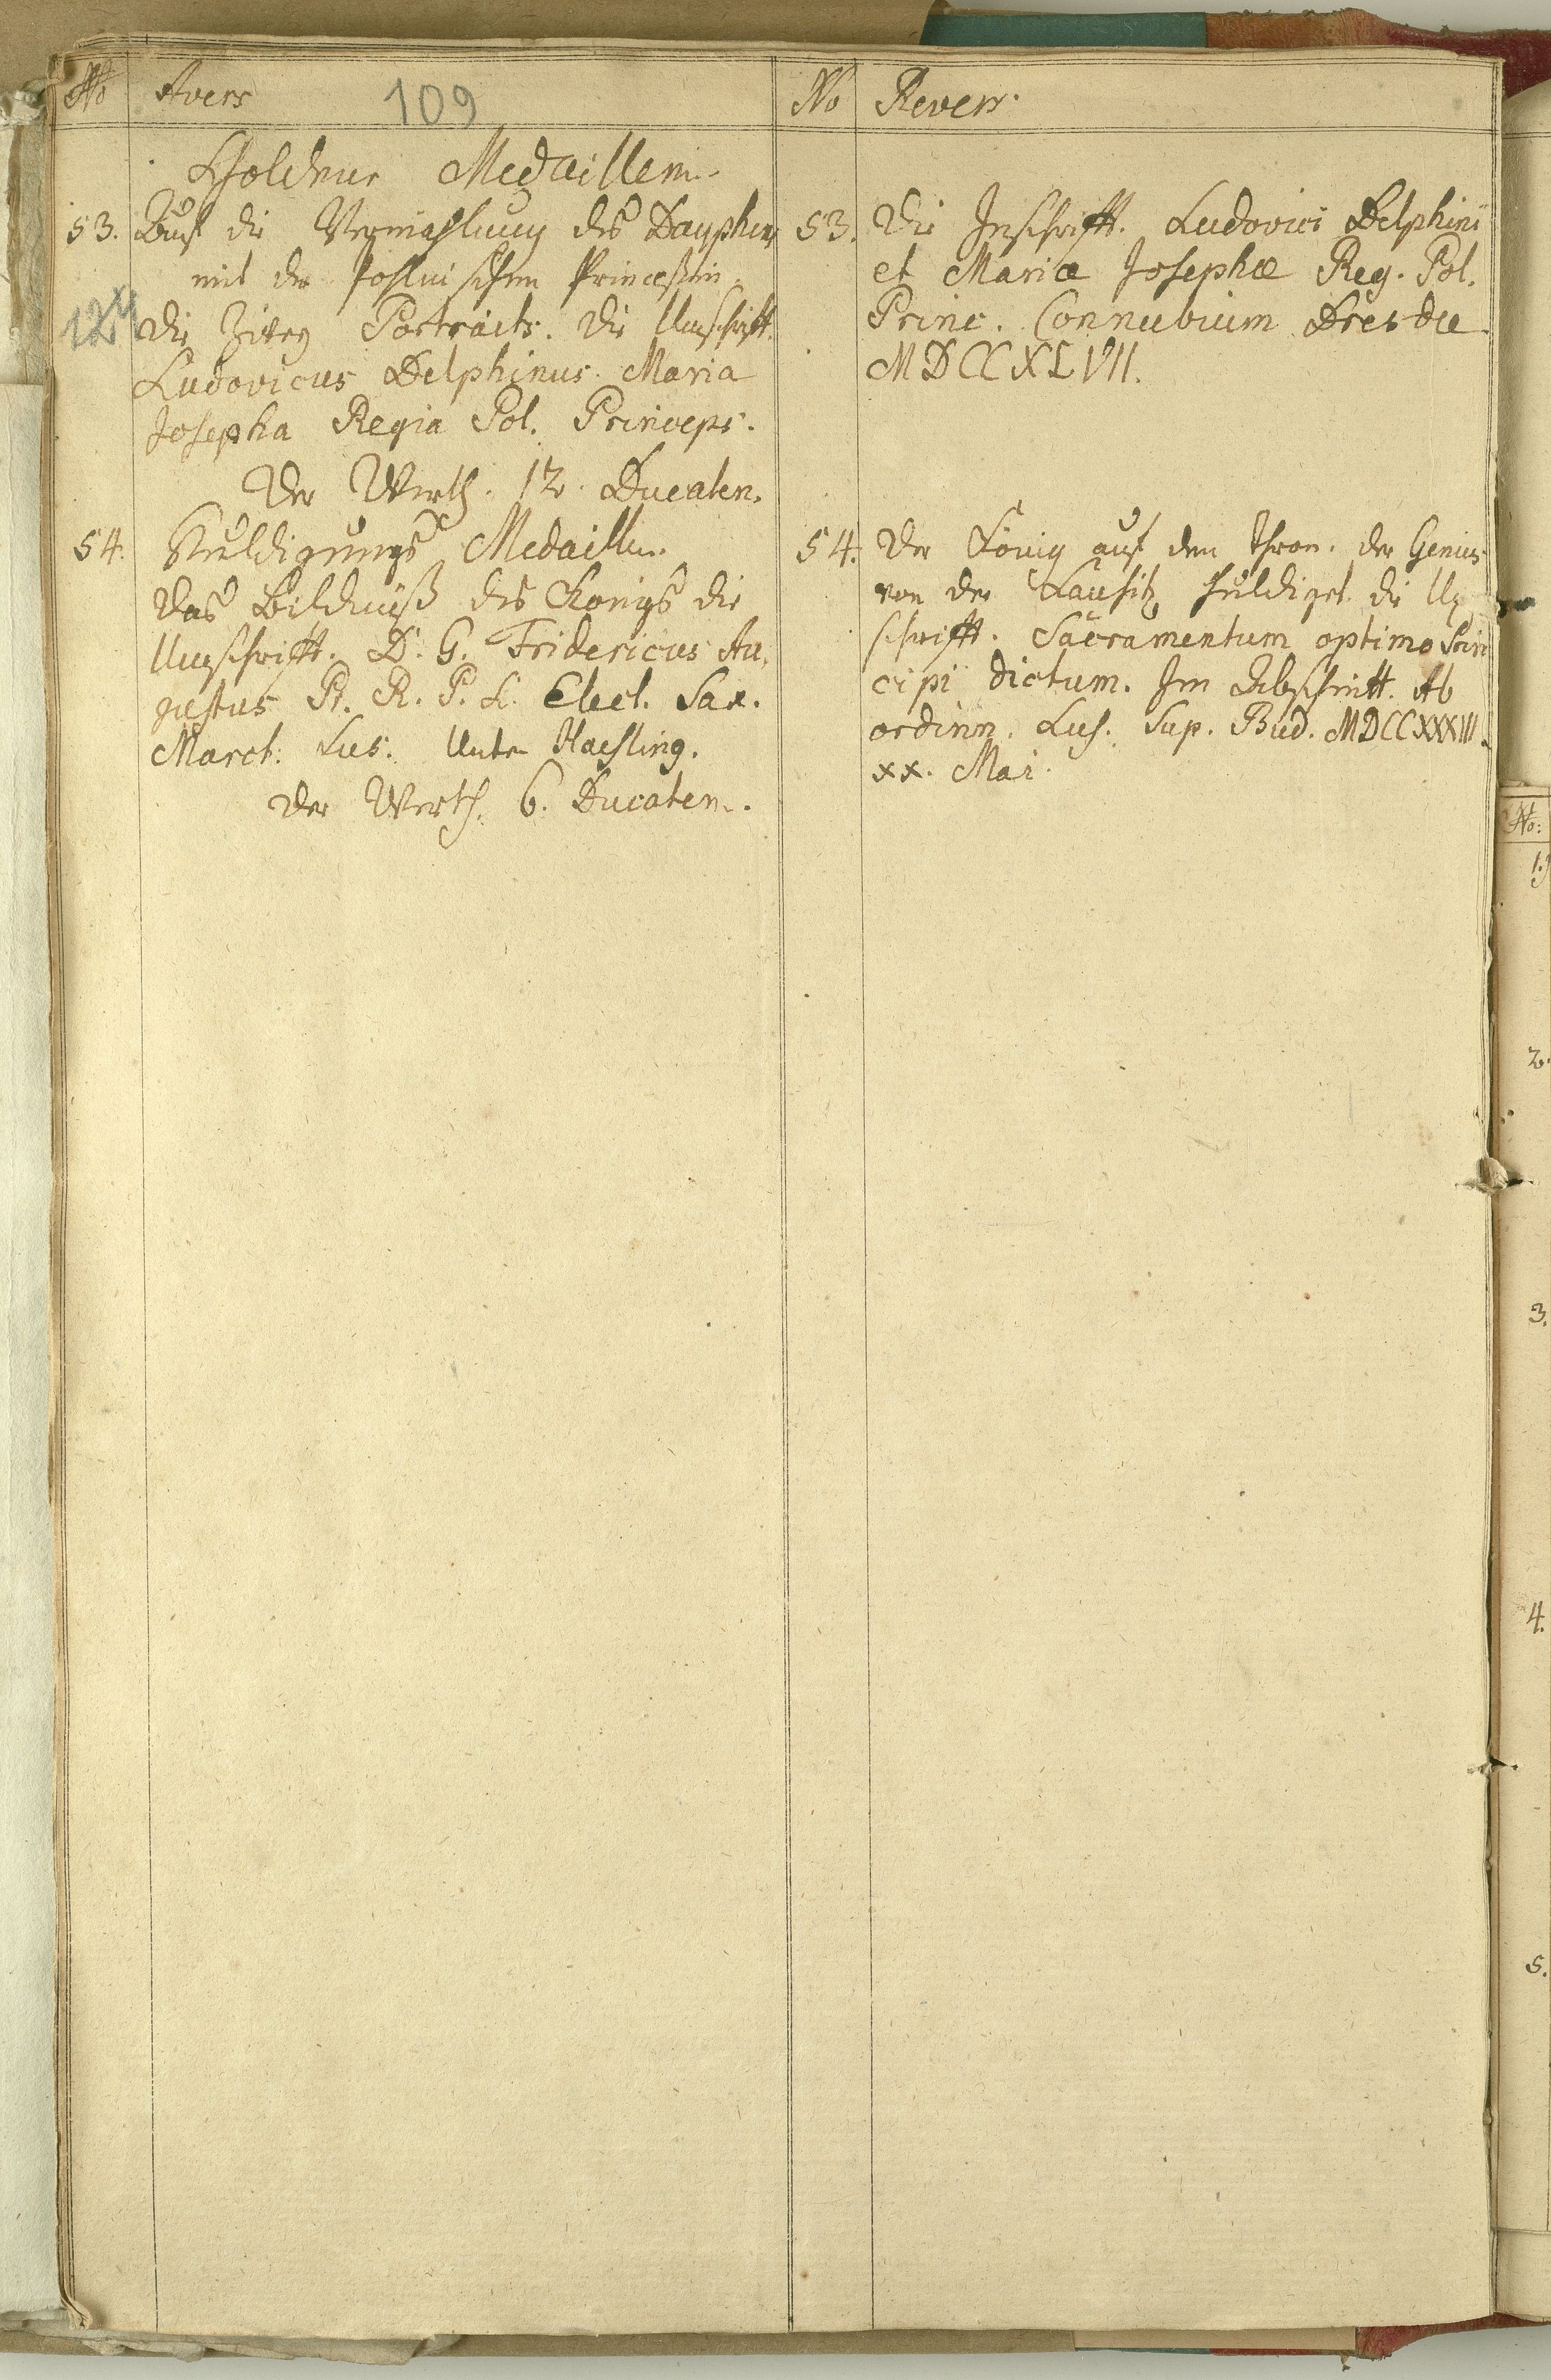 No Avers 109
Goldene Medaillen.
53. Auf die Vermählung des Dauphins
mit der Pohlnischen Princeßin.
124 Die Zwey Portraits. Die Umschrifft.
Ludovicus Delphinus. Maria
Josepha Regia Pol. Princeps.
Der Werth. 12. Ducaten.
54. Huldigungs Medaille.
Das Bildnüß des Königs die
Umschrifft. D. G. Fridericus Au,
gustus R. P. Elect. Sax.
March. Lus. Unten
Der Werth. 6. Ducaten.
No Revers.
53. Die Inschrifft. Ludovici Delphini
et Mariæ Josephæ Reg. Pol.
Princ. Connubium Dresdæ
MDCCXLVII.
54. Der König auf dem Thron. der Genius
von der Lausitz huldiget die Um
schrifft. Sacramentum optimo Prin
cipi dictum. Im Abschnitt. Ab
ordinn. Lus. Sup. Bud. MDCCXXXIII.
xx. Mai.
No:
1.)
2.
3.
4.
5.